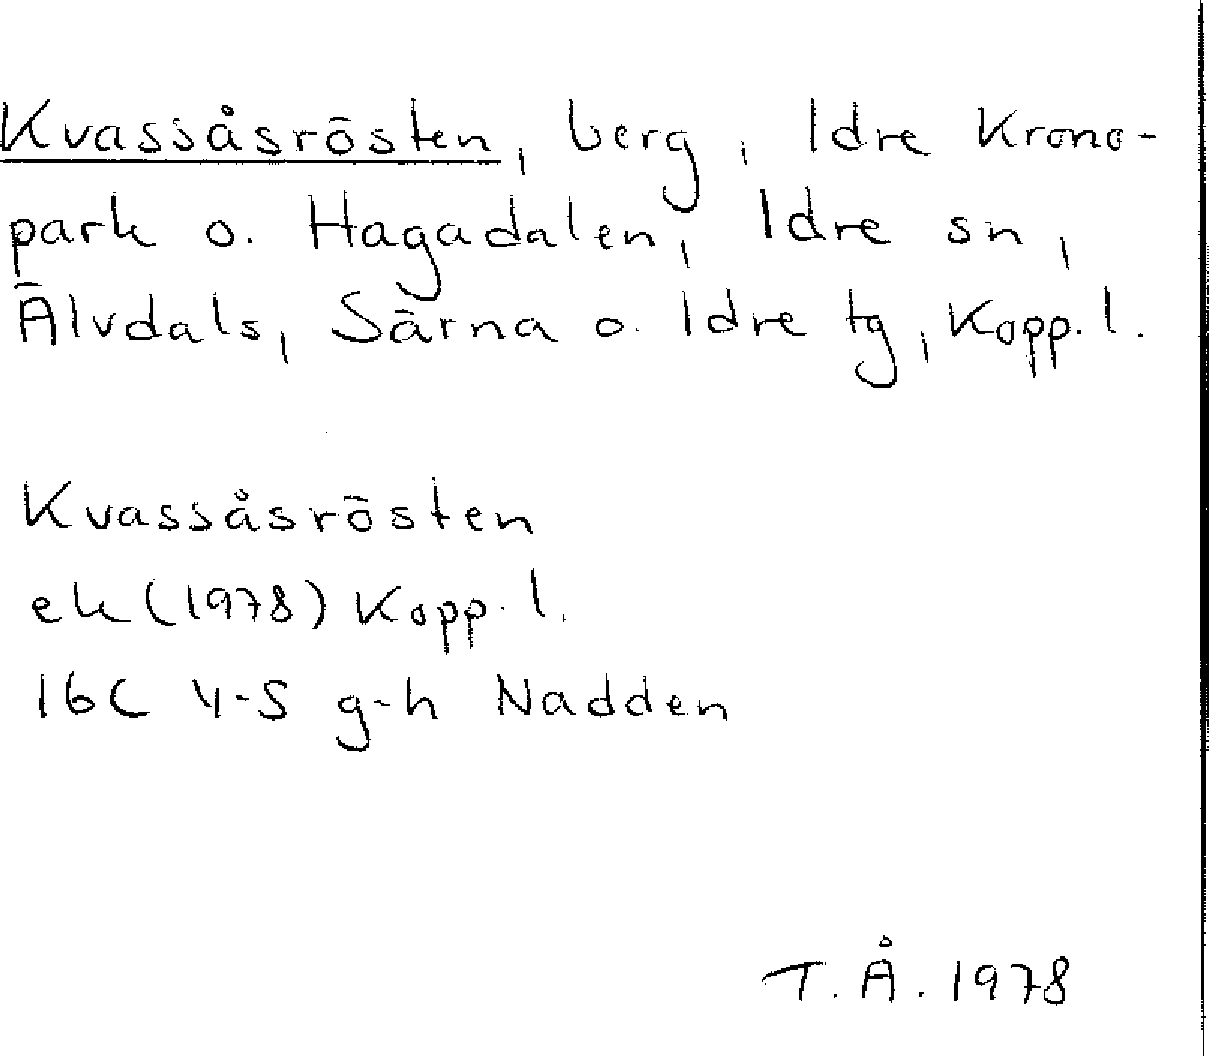 Kvassåsrösten, berg, Idre Krono-
park o. Hagadalen, Idre sn,
Älvdals, Särna o. Idre tg, Kopp. l.
Kvassåsrösten
ek (1978) Kopp. l.
16C 4-5 g-h Nadden
T. Å. 1978